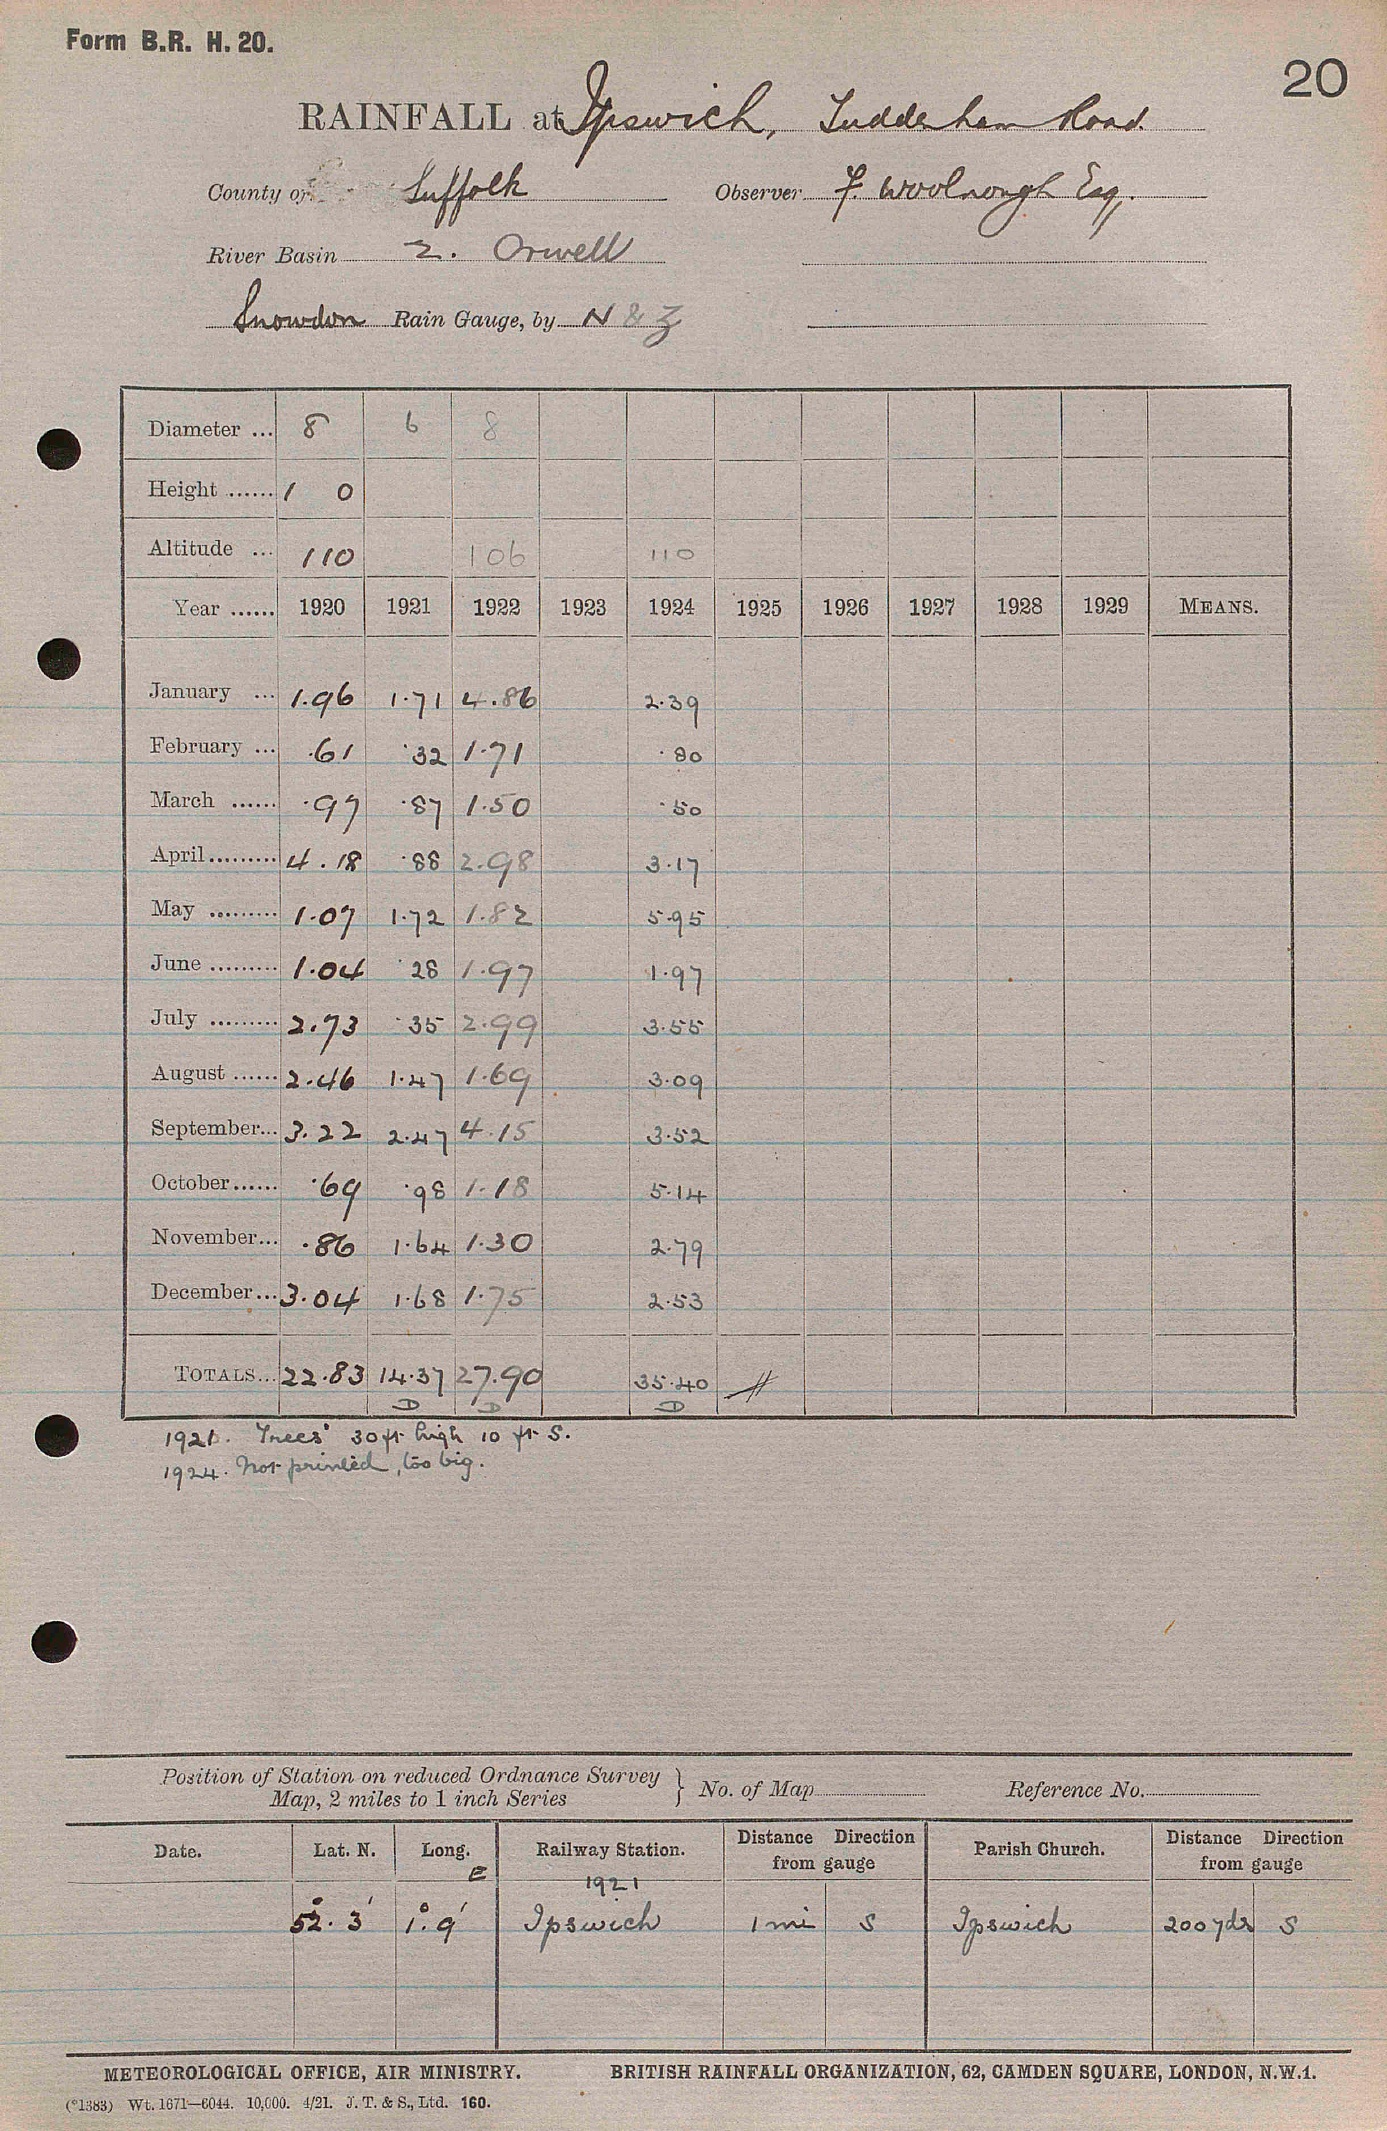 Form B.R. H. 20.
20
RAINFALL at Ipswich, Tuddenham Road.
County of Suffolk Observer F. Woolnough Esq,
River Basin 2. Orwell
Snowdon Rain Gauge, by N & Z
Diameter ... 8 6 8
Height ...... 1 0
Altitude ... 110 106 110
Year ...... 1920 1921 1922 1923 1924 1925 1926 1927 1928 1929 MEANS.
January ... 1.96 1.71 4.86 2.39
February ... .61 .32 1.71 .80
March ...... .97 .87 1.50 .50
April ......... 4.18 .88 2.98 3.17
May ......... 1.07 1.72 1.82 5.95
June ......... 1.04 .28 1.97 1.97
July ......... 2.73 .35 2.99 3.55
August ...... 2.46 1.47 1.69 3.09
September... 3.22 2.47 4.15 3.52
October...... .69 .98 1.18 5.14
November... .86 1.64 1.30 2.79
December... 3.04 1.68 1.75 2.53
TOTALS... 22.83 14.37 27.90 35.40
D D D
1921. Trees 30 ft high 10 ft S.
1924. Not printed, too big.
Position of Station on reduced Ordnance Survey
Map, 2 miles to 1 inch Series } No. of Map Reference No.
Date. Lat. N. Long. E Railway Station. Distance Direction from gauge Parish Church. Distance Direction from gauge
1921
52° 3' 1° 9' Ipswich 1 mi S Ipswich 200 yds S
METEOROLOGICAL OFFICE, AIR MINISTRY. BRITISH RAINFALL ORGANIZATION, 62, CAMDEN SQUARE, LONDON, N.W.1.
(*1383) Wt. 1671—6044. 10,000. 4/21. J. T. & S., Ltd. 160.